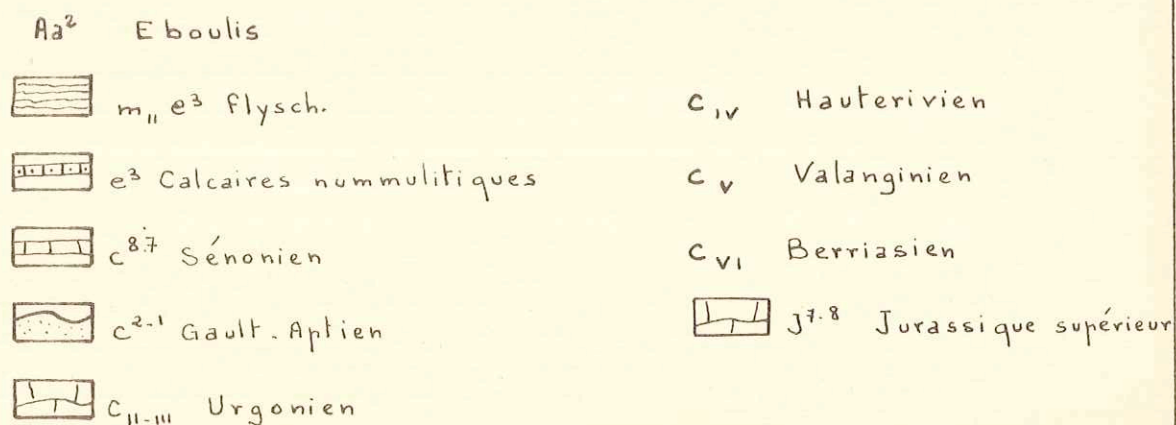 Aa² Eboulis
m,, e³ flysch.
e³ Calcaires nummulitiques
c⁸·⁷ Sénonien
c²⁻¹ Gault. Aptien
C_II-III Urgonien
C_IV Hauterivien
C_V Valanginien
C_VI Berriasien
J⁷·⁸ Jurassique supérieur